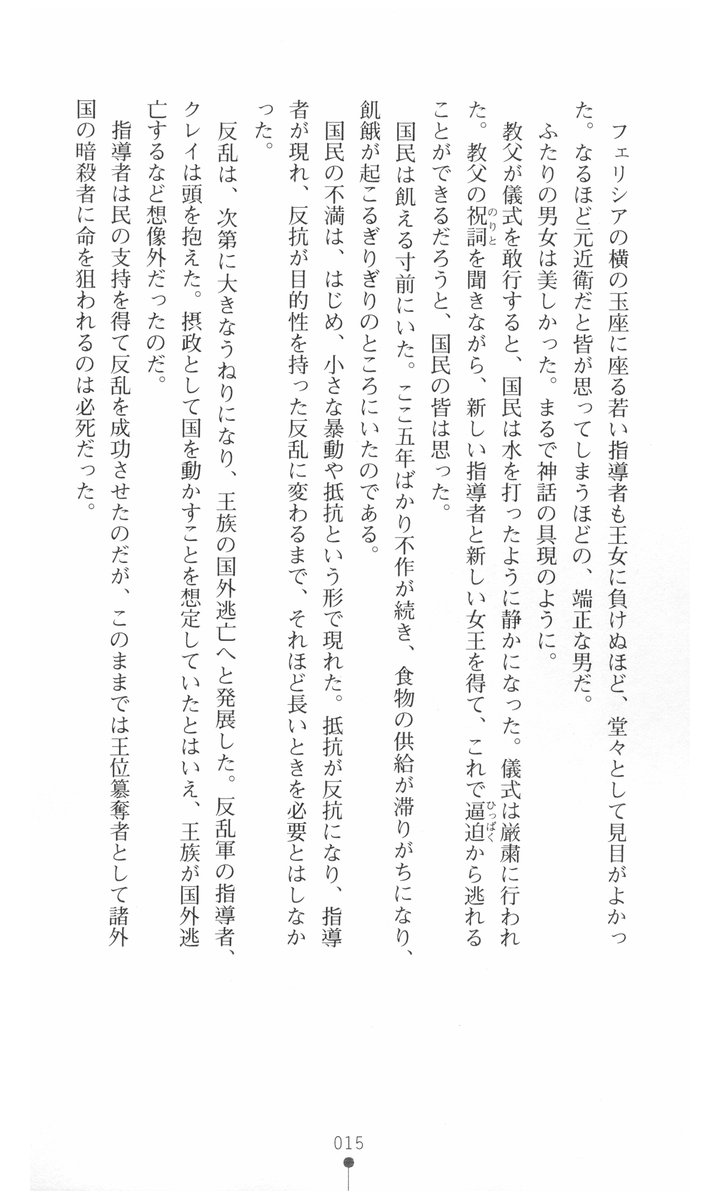 フェリシアの横の玉座に座る若い指導者も王女に負けぬほど、堂々として見目がよかっ
た。なるほど元近衛だと皆が思ってしまうほどの、端正な男だ。
ふたりの男女は美しかった。まるで神話の具現のように。
教父が儀式を敢行すると、国民は水を打ったように静かになった。儀式は厳粛に行われ
た。教父の祝詞を聞きながら、新しい指導者と新しい女王を得て、これで逼迫から逃れる
のりと
ひっぱく
ことができるだろうと、国民の皆は思った。
国民は飢える寸前にいた。ここ五年ばかり不作が続き、食物の供給が滞りがちになり、
飢餓が起こるぎりぎりのところにいたのである。
国民の不満は、はじめ、小さな暴動や抵抗という形で現れた。抵抗が反抗になり、指導
者が現れ、反抗が目的性を持った反乱に変わるまで、それほど長いときを必要とはしなか
った。
反乱は、次第に大きなうねりになり、王族の国外逃亡へと発展した。反乱軍の指導者、
クレイは頭を抱えた。摂政として国を動かすことを想定していたとはいえ、王族が国外逃
亡するなど想像外だったのだ。
指導者は民の支持を得て反乱を成功させたのだが、このままでは王位簒奪者として諸外
国の暗殺者に命を狙われるのは必死だった。
015